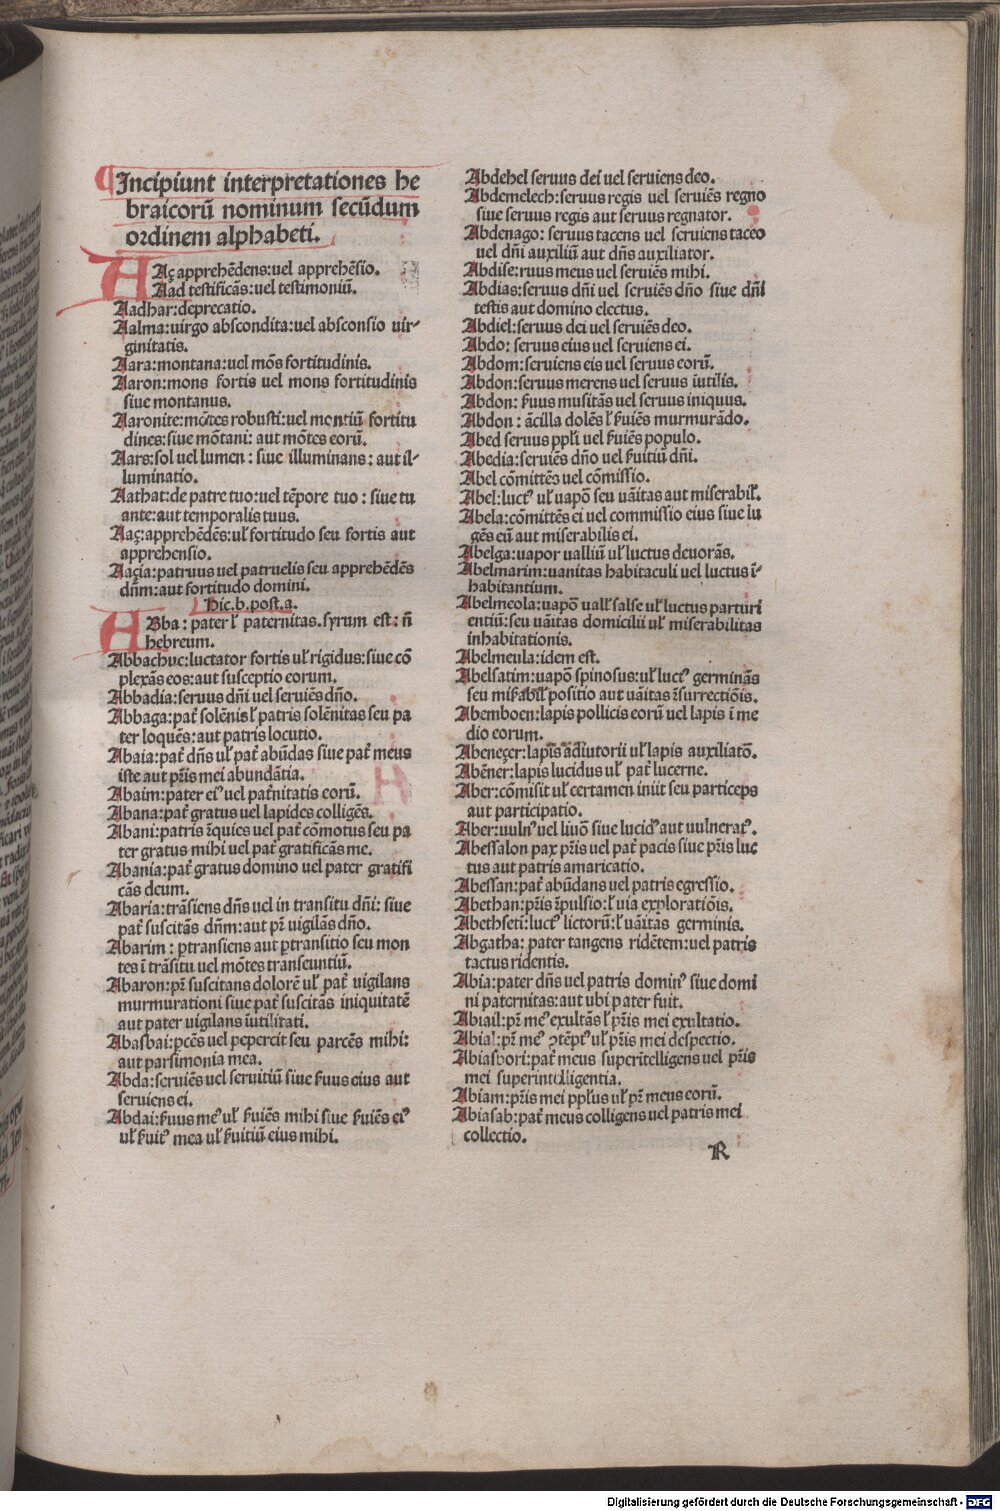 ¶Incipiunt interpretationes he
braicorū nominum secūdum
ordinem alphabeti.
AAç apprehēdens:uel apprehēsio.
Aad testificās:uel testimoniū.
Aadhar:deprecatio.
Aalma:uirgo abscondita:uel absconsio uir-
ginitatis.
Aara:montana:uel mōs fortitudinis.
Aaron:mons fortis uel mons fortitudinis
siue montanus.
Aaronite:mōtes robusti:uel montiū fortitu
dines:siue mōtani: aut mōtes eorū.
Aars:sol uel lumen: siue illuminans: aut il-
luminatio.
Aathat:de patre tuo:uel tēpore tuo: siue tu
ante:aut temporalis tuus.
Aaç:apprehēdēs:uł fortitudo seu fortis aut
apprehensio.
Aaçia:patruus uel patruelis seu apprehēdēs
dñm:aut fortitudo domini.
Hic.b.post.a.
ABba: pater ł paternitas.syrum est: ñ
hebreum.
Abbachuc:luctator fortis uł rigidus:siue cō
plexās eos:aut susceptio eorum.
Abbadia:seruus dñi uel seruiēs dño.
Abbaga:pat̄ solēnis ł patris solēnitas seu pa
ter loquēs:aut patris locutio.
Abaia:pat̄ dñs uł pat̄ abūdas siue pat̄ meus
iste aut pr̄is mei abundātia.
Abaim:pater eiꝰ uel pat̄nitatis eorū.
Abana:pat̄ gratus uel lapides colligēs.
Abani:patris īquies uel pat̄ cōmotus seu pa
ter gratus mihi uel pat̄ gratificās me.
Abania:pat̄ gratus domino uel pater gratifi
cās deum.
Abaria:trāsiens dñs uel in transitu dñi: siue
pat̄ suscitās dñm:aut pr̄ uigilās dño.
Abarim: ꝑtransiens aut ꝑtransitio seu mon
tes ī trāsitu uel mōtes transeuntiū.
Abaron:pr̄ suscitans dolorē uł pat̄ uigilans
murmurationi siue pat̄ suscitās iniquitatē
aut pater uigilans īutilitati.
Abasbai:ꝑcēs uel pepercit seu parcēs mihi:
aut parsimonia mea.
Abda:seruiēs uel seruitiū siue ẜuus eius aut
seruiens ei.
Abdai:ẜuus meꝰ uł ẜuiēs mihi siue ẜuiēs eiꝰ
uł ẜuitꝰ mea uł ẜuitiū eius mihi.
Abdehel seruus dei uel seruiens deo.
Abdemelech:seruus regis uel seruiēs regno
siue seruus regis aut seruus regnator.
Abdenago: seruus tacens uel seruiens taceo
uel dñi auxiliū aut dñs auxiliator.
Abdise:ruus meus uel seruiēs mihi.
Abdias:seruus dñi uel seruiēs dño siue dñi
testis aut domino electus.
Abdiel:seruus dei uel seruiēs deo.
Abdo: seruus eius uel seruiens ei.
Abdom:seruiens eis uel seruus eorū.
Abdon:seruus merens uel seruus īutilis.
Abdon: ẜuus musitās uel seruus iniquus.
Abdon: ācilla dolēs ł ẜuiēs murmurādo.
Abed seruus ppłi uel ẜuiēs populo.
Abedia:seruiēs dño uel ẜuitiū dñi.
Abel cōmittēs uel cōmissio.
Abel:luctꝰ uł uapoꝛ̄ seu uāitas aut miserabił.
Abela:cōmittēs ei uel commissio eius siue lu
gēs eū aut miserabilis ei.
Abelga:uapor ualliū uł luctus deuorās.
Abelmarim:uanitas habitaculi uel luctus ī-
habitantium.
Abelmeola:uapoꝛ̄ uałł salse uł luctus parturi
entiū:seu uāitas domicilii uł miserabilitas
inhabitationis.
Abelmeula:idem est.
Abelsatim:uapoꝛ̄ spinosus:uł luctꝰ germinās
seu miẜabił positio aut uāitas īsurrectiōis.
Abemboen:lapis pollicis eorū uel lapis ī me
dio eorum.
Abeneçer:lapis adiutorii uł lapis auxiliatō.
Abēner:lapis lucidus uł pat̄ lucerne.
Aber:cōmisit uł certamen iniit seu particeps
aut participatio.
Aber:uulnꝰ uel liuoꝛ̄ siue lucidꝰ aut uulneratꝰ.
Abessalon pax pr̄is uel pat̄ pacis siue pr̄is luc
tus aut patris amaricatio.
Abessan:pat̄ abūdans uel patris egressio.
Abethan:pr̄is īpulsio:ł uia exploratiōis.
Abethseti:luctꝰ lictorū:ł uāitas germinis.
Abgatha: pater tangens ridētem:uel patris
tactus ridentis.
Abia:pater dñs uel patris dominꝰ siue domi
ni paternitas:aut ubi pater fuit.
Abiail:pr̄ meꝰ exultās ł pr̄is mei exultatio.
Abial:pr̄ meꝰ ꝯtēptꝰ uł pr̄is mei despectio.
Abiasbori:pat̄ meus superītelligens uel pr̄is
mei superintelligentia.
Abiam:pr̄is mei ppłus uł pr̄ meus eorū.
Abiasab:pat̄ meus colligens uel patris mei
collectio.
R
Digitalisierung gefördert durch die Deutsche Forschungsgemeinschaft - DFG